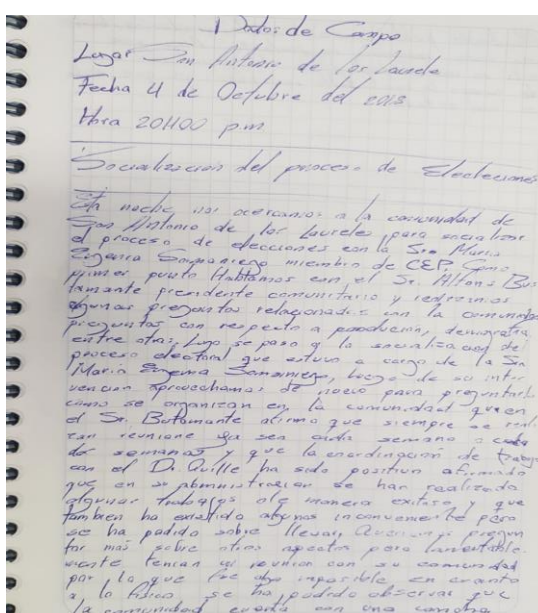 Datos de Campo
Lugar San Antonio de los Laurele
Fecha 4 de Octubre del 2018
Hora 20H00 p.m
Socialización del proceso de Elecleciones
Esta noche nos acercamos a la comunidad de
San Antonio de los Laureles para socializar
el proceso de elecciones con la Sra Maria
Eugenia Samaniego miembro de CEP. Como
primer punto Hablamos con el Sr. Alfons Bus
tamante presidente comunitario y
algunas preguntas relacionadas con la comunidad
preguntas con respecto a producción, demografia
entre otras, luego se paso a la socialización del
proceso electoral que estuvo a cargo de la Sra
Maria Eugenia Samaniego, luego de su inter
vencion aprovechamos de nuevo para preguntarle
como se organizan en la comunidad quien
el Sr. Butamante afirmo que siempre se reali
zan reunione ya sea cada semana o cada
dos semanas y que la coordinación de trabajo
con el Dr. Quille ha sido positivo afirmado
que en su administración se han realizado
algunas trabajos de manera exitosa y que
tambien ha existido algunos inconveniente pero
se ha podido sobre llevar, Queriamos pregun
tar mas sobre otros aspectos pero lamentable.
mente tenian su reunion con su comunidad
por lo que fue algo imposible en cuanto
a lo fisico se ha podido observar que
la comunidad cuenta con una cancha